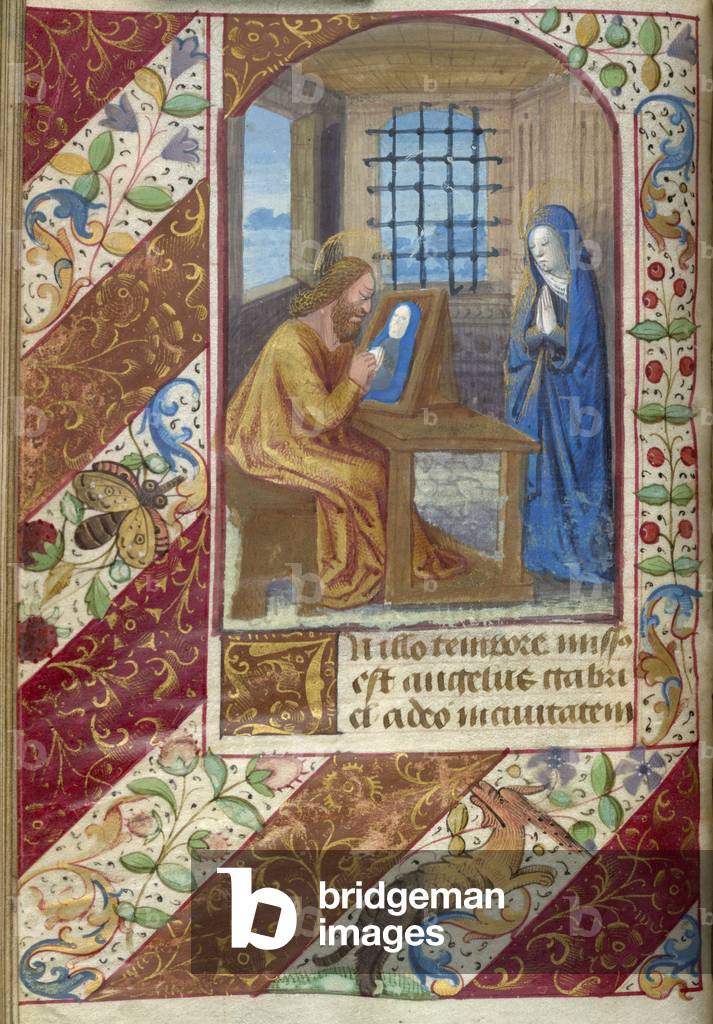 In illo tempore missus
est angelus gabri
el a deo in civitatem
bridgeman
images